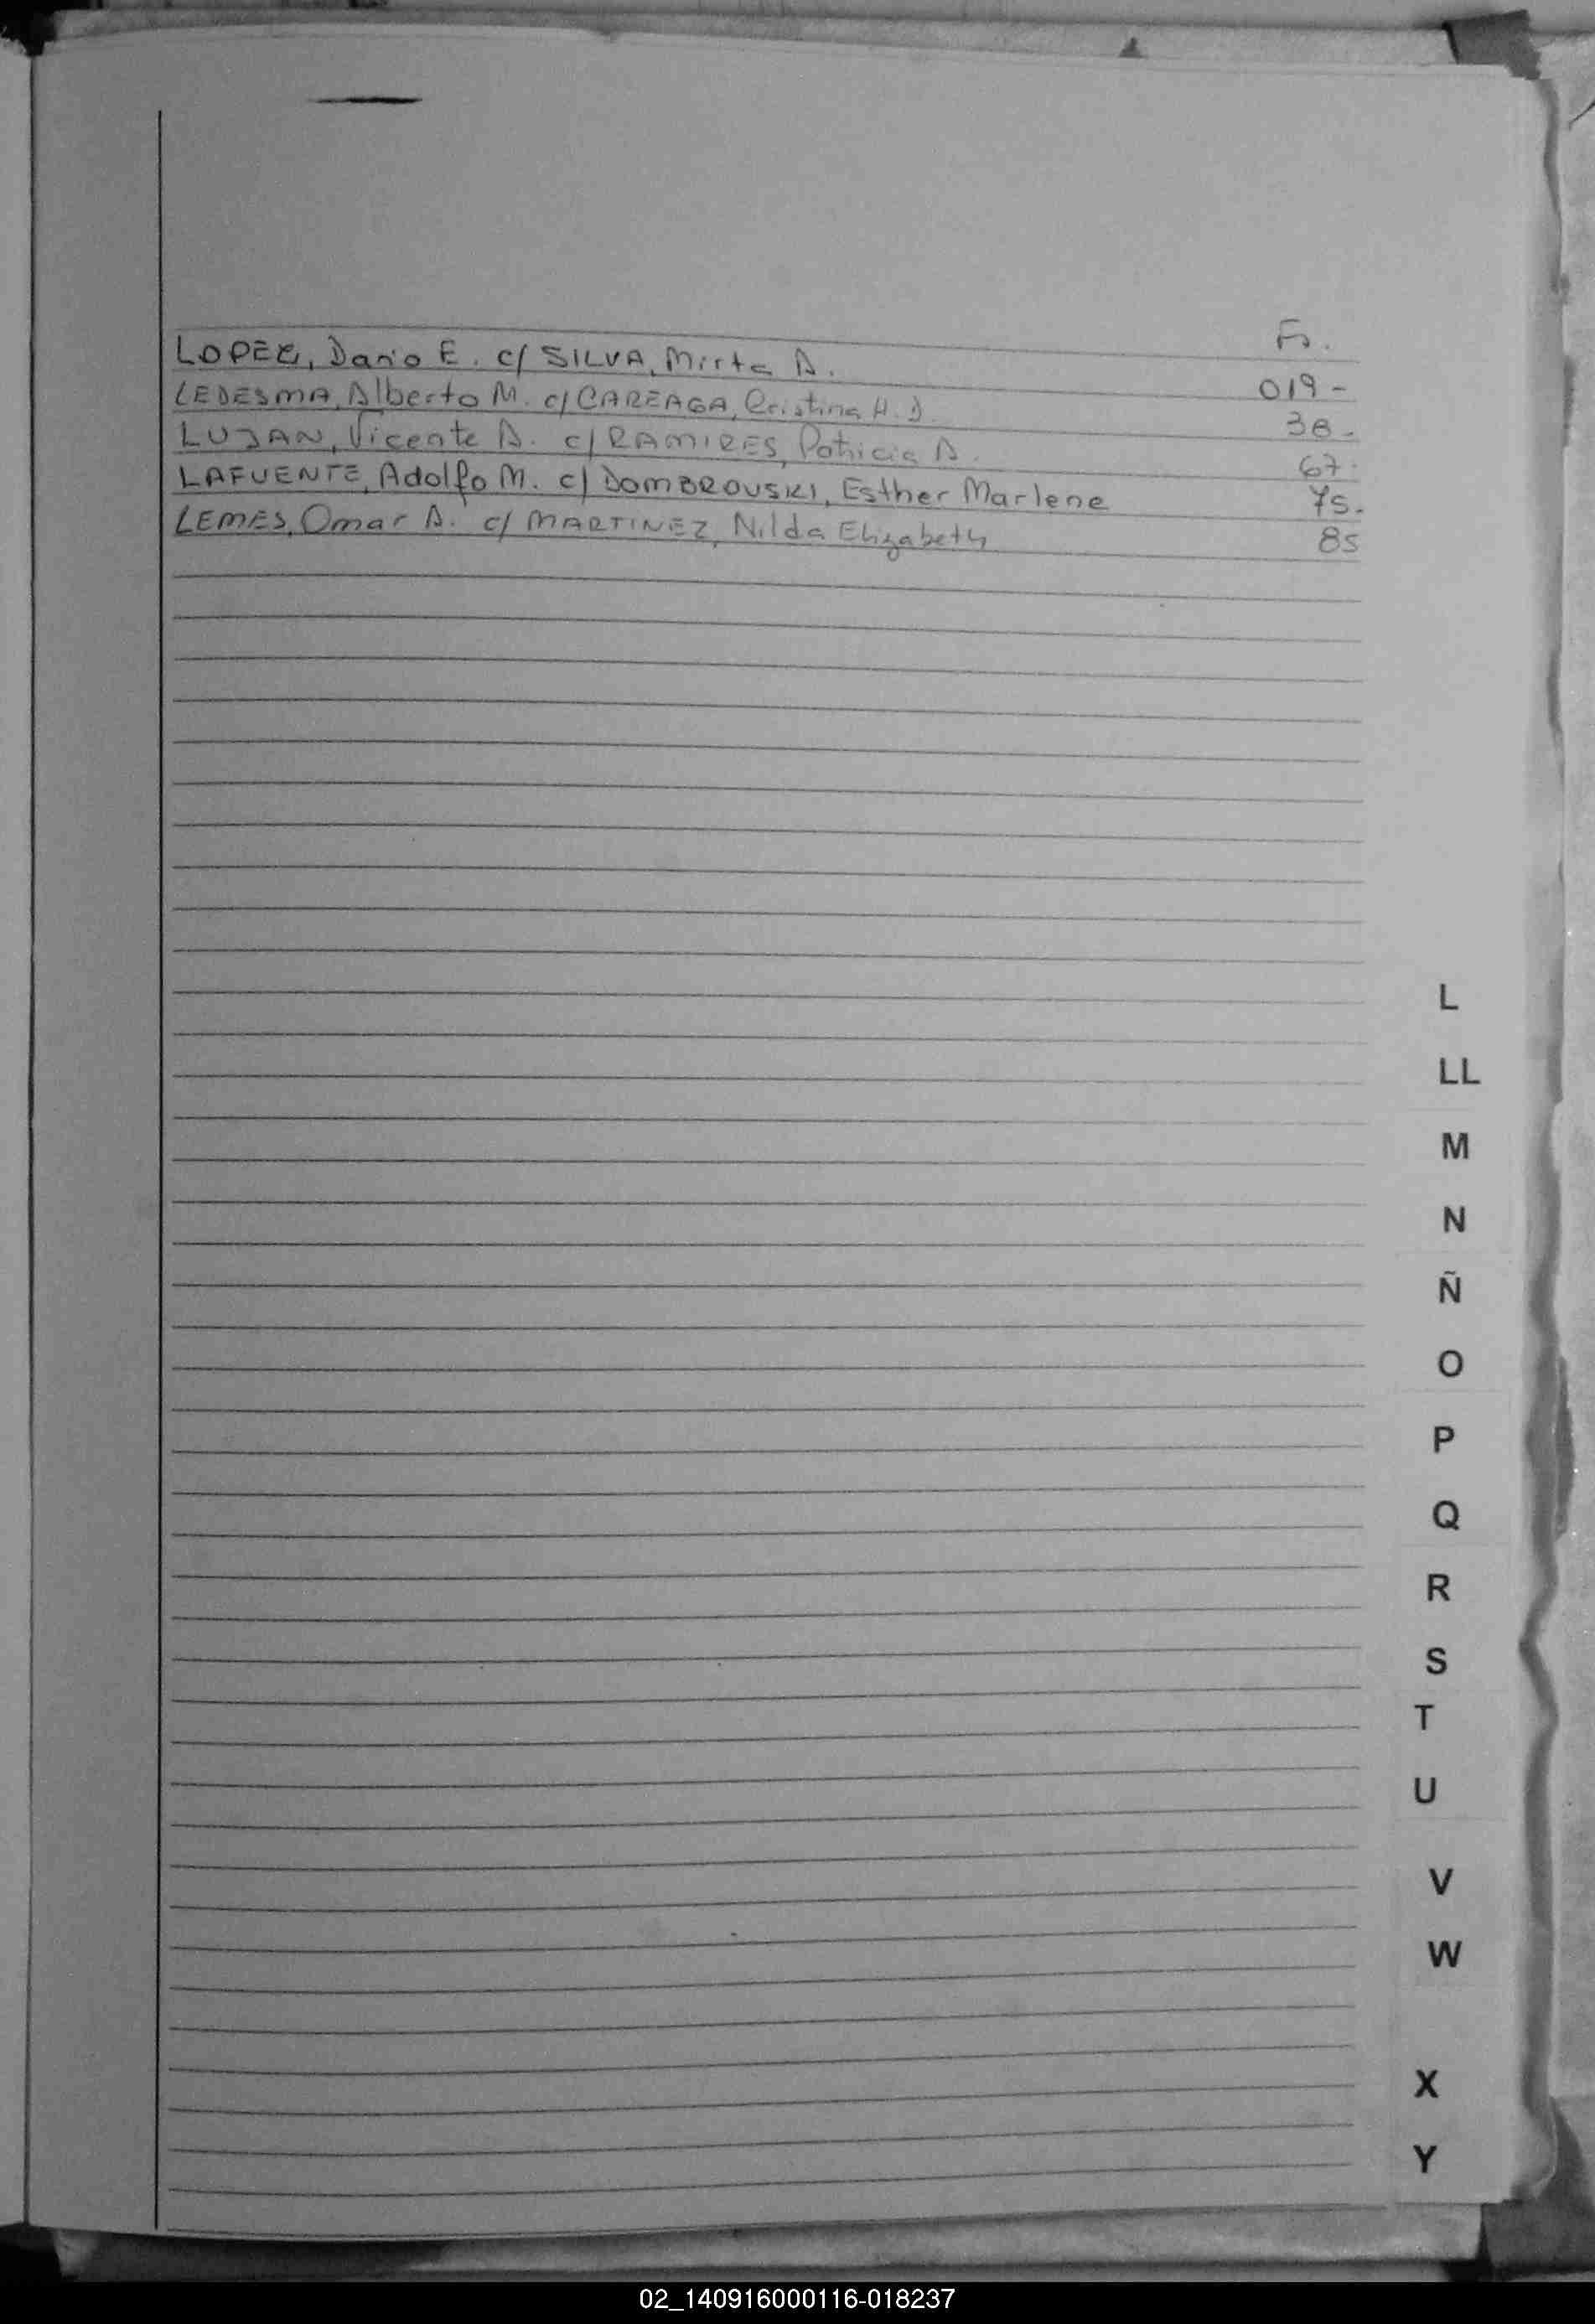 Fs.
LOPEZ, Dario E. c/ SILVA, Mirta A. 019-
LEDESMA, Alberto M. c/ CAREAGA, Cristina H. D. 38-
LUJAN, Vicente A. c/ RAMIRES, Patricia A. 67.
LAFUENTE, Adolfo M. c/ DOMBROUSKI, Esther Marlene 75.
LEMES, Omar A. c/ MARTINEZ, Nilda Elizabeth 85
L
LL
M
N
Ñ
O
P
Q
R
S
T
U
V
W
X
Y
02_140916000116-018237